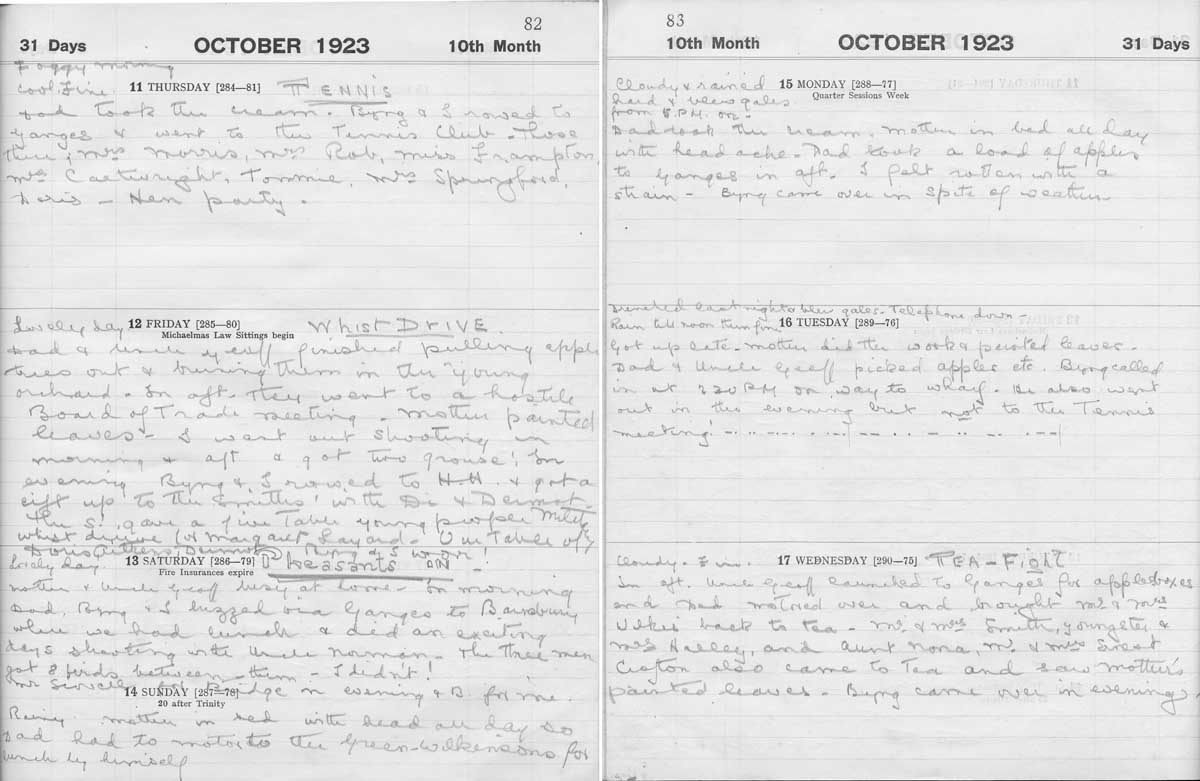 82
31 Days OCTOBER 1923 10th Month
Foggy morning
Cool. Fine. 11 THURSDAY [284—81] TENNIS
Dad took the cream. Byng & I rowed to
Ganges & went to the Tennis Club. Those
there; Mrs Morris, Mrs Rob, Miss Frampton,
Mrs Cartwright, Tommie, Mrs Springford,
Doris — Hen party.
Lovely day 12 FRIDAY [285—80] WHIST DRIVE.
Michaelmas Law Sittings begin
Dad & Uncle Geoff finished pulling apple
trees out & burning them in the young
orchard. In aft. they went to a hostile
Board of Trade meeting. Mother painted
leaves — I went out shooting in
morning & aft & got two grouse! In
evening Byng & I rowed to H.H. & got a
lift up to the Smiths' with Di & Dermot.
The S. gave a five table young people
whist drive for Margaret Layard. Our table of
Doris, Dermot Byng & I won!
Lovely day. 13 SATURDAY [286—79] Pheasants ON —
Fire Insurances expire
Mother & Uncle Geoff busy at home. In morning
Dad, Byng & I buzzed via Ganges to Barnsbury
where we had lunch & did an exciting
days shooting with Uncle Norman. The three men
got 8 birds between them — I didn't!
Mr Scovell in evening & B. for me.
14 SUNDAY [287—78]
20 after Trinity
Rainy. Mother in bed with head all day so
Dad had to motor to the Green-Wilkinsons for
lunch by himself
83
10th Month OCTOBER 1923 31 Days
Cloudy & rained 15 MONDAY [288—77]
hard & blew gales Quarter Sessions Week
from 5 P.M. on —
Dad took the cream. Mother in bed all day
with head ache. Dad took a load of apples
to Ganges in aft. I felt rotten with a
strain — Byng came over in spite of weather
last night & blew gales. Telephone down
Rain till noon then fine 16 TUESDAY [289—76]
Got up late. Mother did the work & painted leaves.
Dad & Uncle Geoff picked apples etc. Byng called
in at 2 20 PM on way to wharf. He also went
out in the evening but not to the Tennis
meeting!
Cloudy. Fine. 17 WEDNESDAY [290—75] TEA-FIGHT
In aft. Uncle Geoff launched to Ganges for apple boxes
and Dad motored over and brought Mr & Mrs
back to tea — Mr & Mrs Smith, youngster &
Mrs Halley, and Aunt Nona, Mr & Mrs Sweet
Crofton also came to Tea and saw Mother's
painted leaves. Byng came over in evening